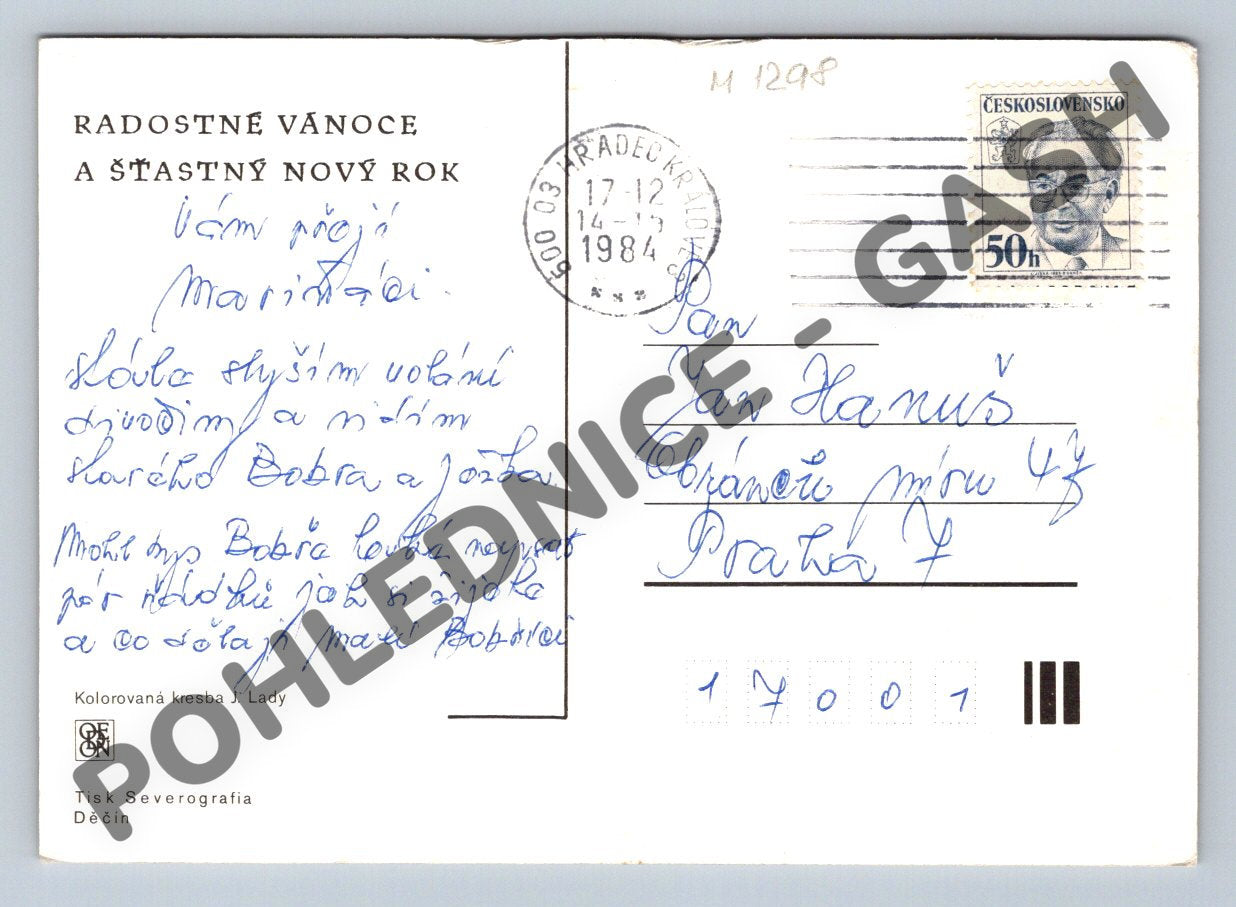 RADOSTNÉ VÁNOCE
A ŠŤASTNÝ NOVÝ ROK
Vám přejí
slyším volání
divočiny a vidím
starého Bobra a Jožka
Mohl bys Bobře
pár řádků jak si žijete
a co dělají malí Bobříci
Kolorovaná kresba J. Lady
ODEON
Tisk Severografia
Děčín
M 1298
500 03 HRADEC KRÁLOVÉ 3
17-12
14-15
1984
ČESKOSLOVENSKO
50h
Pan
Jan Hanuš
Obránců míru 47
Praha 7
17001
POHLEDNICE - GASH